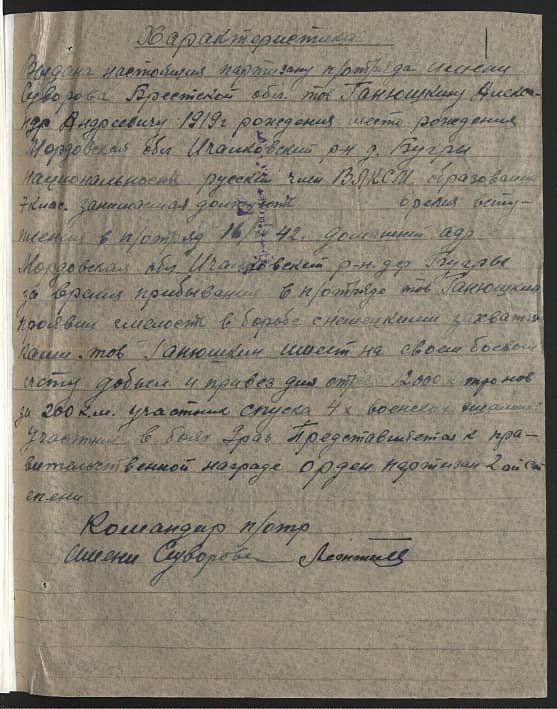 Характеристика
Выдана настоящая партизану п/отряда имени
Суворова Брестской обл. тов Ганюшкину Алекса-
ндр Андреевичу 1919г рождения место рождения
Мордовская обл Ичалковский р-н д. Бугры
национальность русский член ВЛКСМ образование
7 клас. занимаемая должность время всту-
пления в п/отряд 16 42. домашний адр
Мордовская обл Ичалковский р-н. дер Бугры
за время прибывания в п/отряде тов Ганюшкин
проявил смелость в борьбе с немецкими захватчи
ками. тов Ганюшкин имеет на своем боевом
счету добыл и привез для отря 12000 патронов
за 200 к.м. участник спуска 4х военских эшалонов
Участник в боях 3раз Представляется к пра-
вительственной награде орден партизан 2ой сте
пени
Командир п/отр
имени Суворова